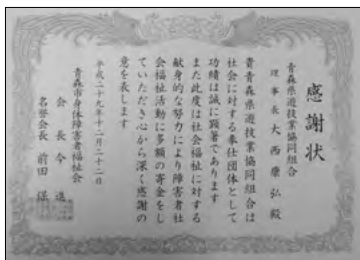 感謝状
青森県遊技業協同組合
理事長 大西康弘殿
貴青森県遊技業協同組合は
社会に対する奉仕団体として
功績は誠に顕著であります
また此度は社会福祉に対する
献身的な努力により障害者社
会福祉活動に多額の寄金をし
ていただき心から深く感謝の
意を表します
平成二十九年十二月二十二日
青森市身体障害者福祉会
会長 今 進
名誉会長 前田 保